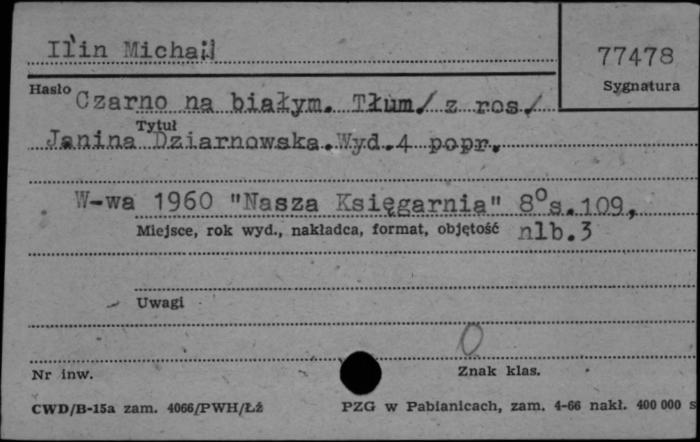 Il'in Michaił
77478
Hasło
Sygnatura
Czarno na białym. Tłum/ z ros/
Tytuł
Janina Dziarnowska.Wyd.4 popr.
W-wa 1960 "Nasza Księgarnia" 8⁰s.109,
Miejsce, rok wyd., nakładca, format, objętość
nlb.3
Uwagi
0
Nr inw.
Znak klas.
CWD/B-15a zam. 4066/PWH/Łź
PZG w Pabianicach, zam. 4-66 nakł. 400 000 s